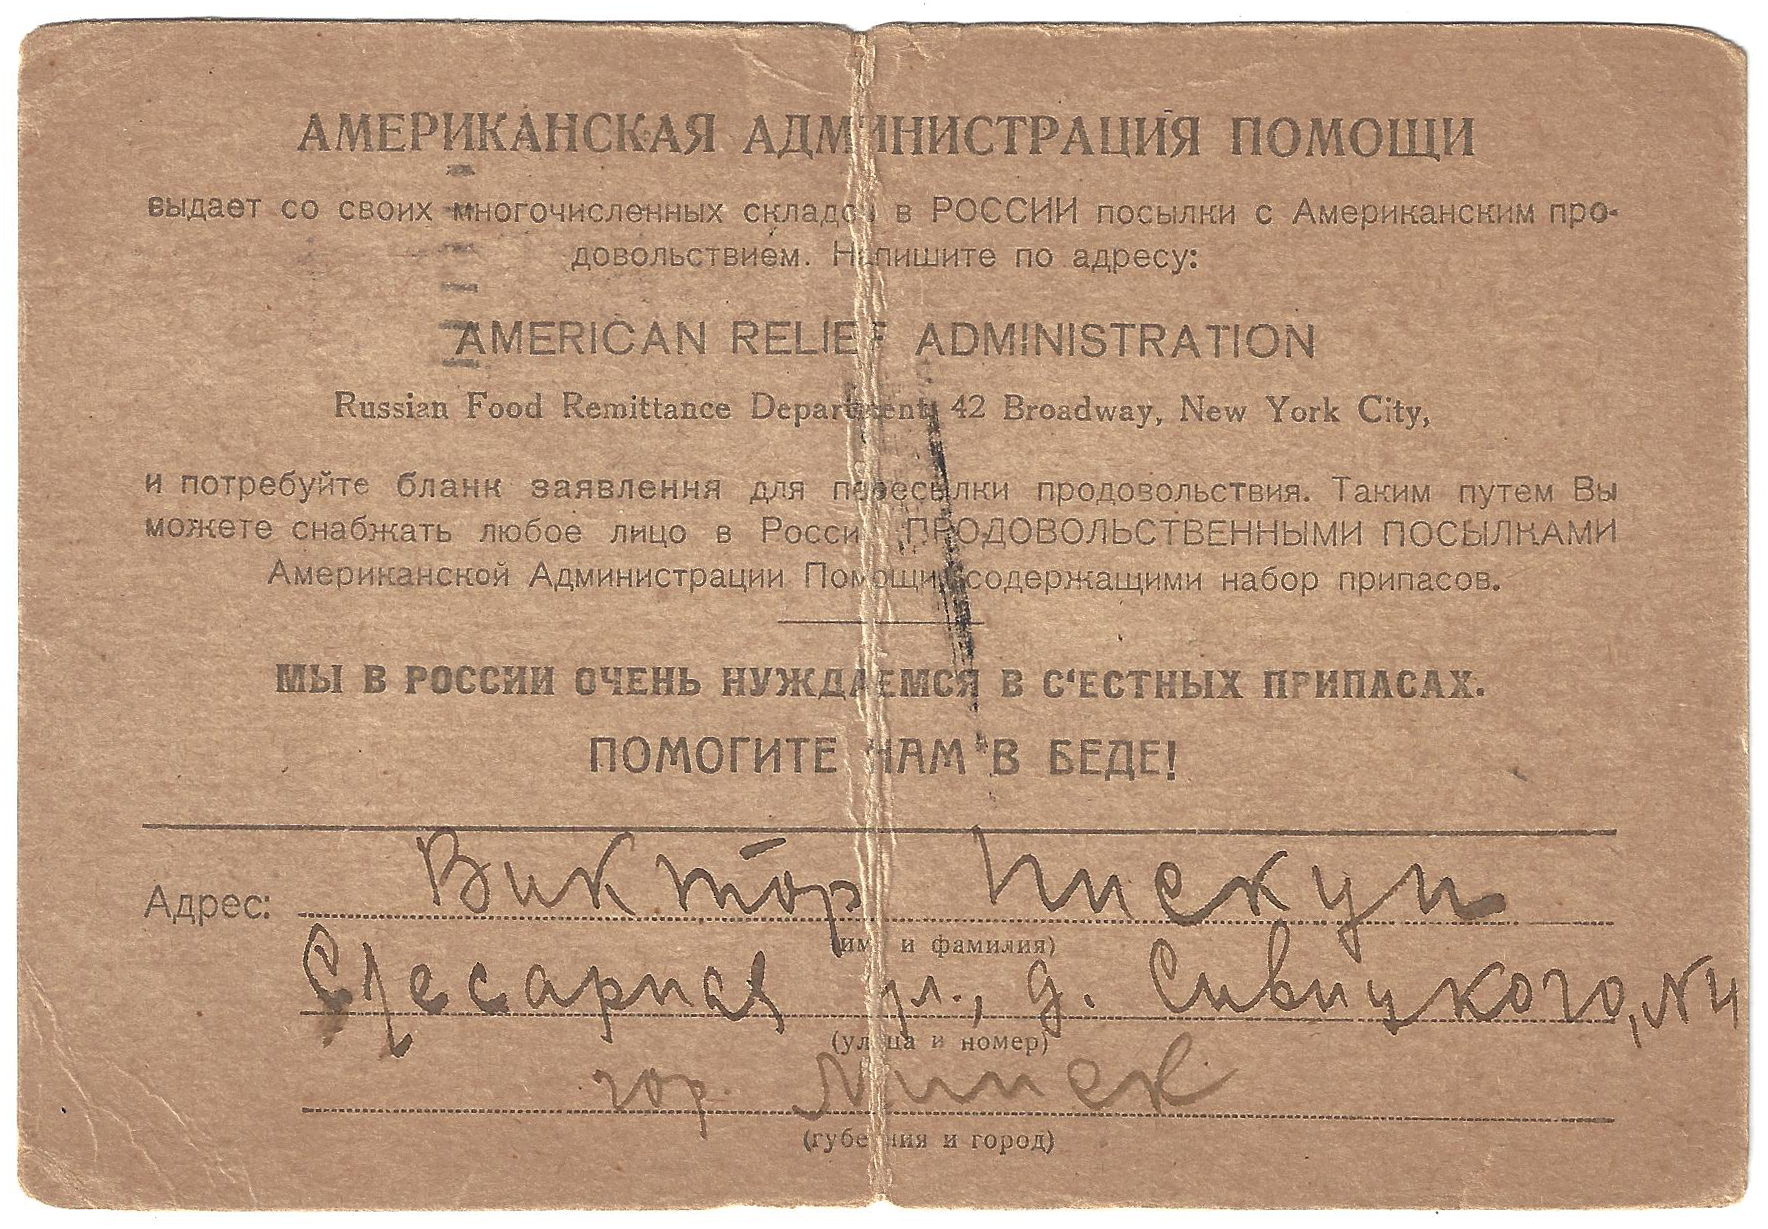 АМЕРИКАНСКАЯ АДМИНИСТРАЦИЯ ПОМОЩИ
выдает со своих многочисленных складов в РОССИИ посылки с Американским про-
довольствием. Напишите по адресу:
AMERICAN RELIEF ADMINISTRATION
Russian Food Remittance Department, 42 Broadway, New York City,
и потребуйте бланк заявления для пересылки продовольствия. Таким путем Вы
можете снабжать любое лицо в России ПРОДОВОЛЬСТВЕННЫМИ ПОСЫЛКАМИ
Американской Администрации Помощи, содержащими набор припасов.
МЫ В РОССИИ ОЧЕНЬ НУЖДАЕМСЯ В С'ЕСТНЫХ ПРИПАСАХ.
ПОМОГИТЕ НАМ В БЕДЕ!
Адрес: Виктор Пискун
(имя и фамилия)
Слесарная ул., д. Сивицкого, № 4
(улица и номер)
гор. Минск
(губерния и город)